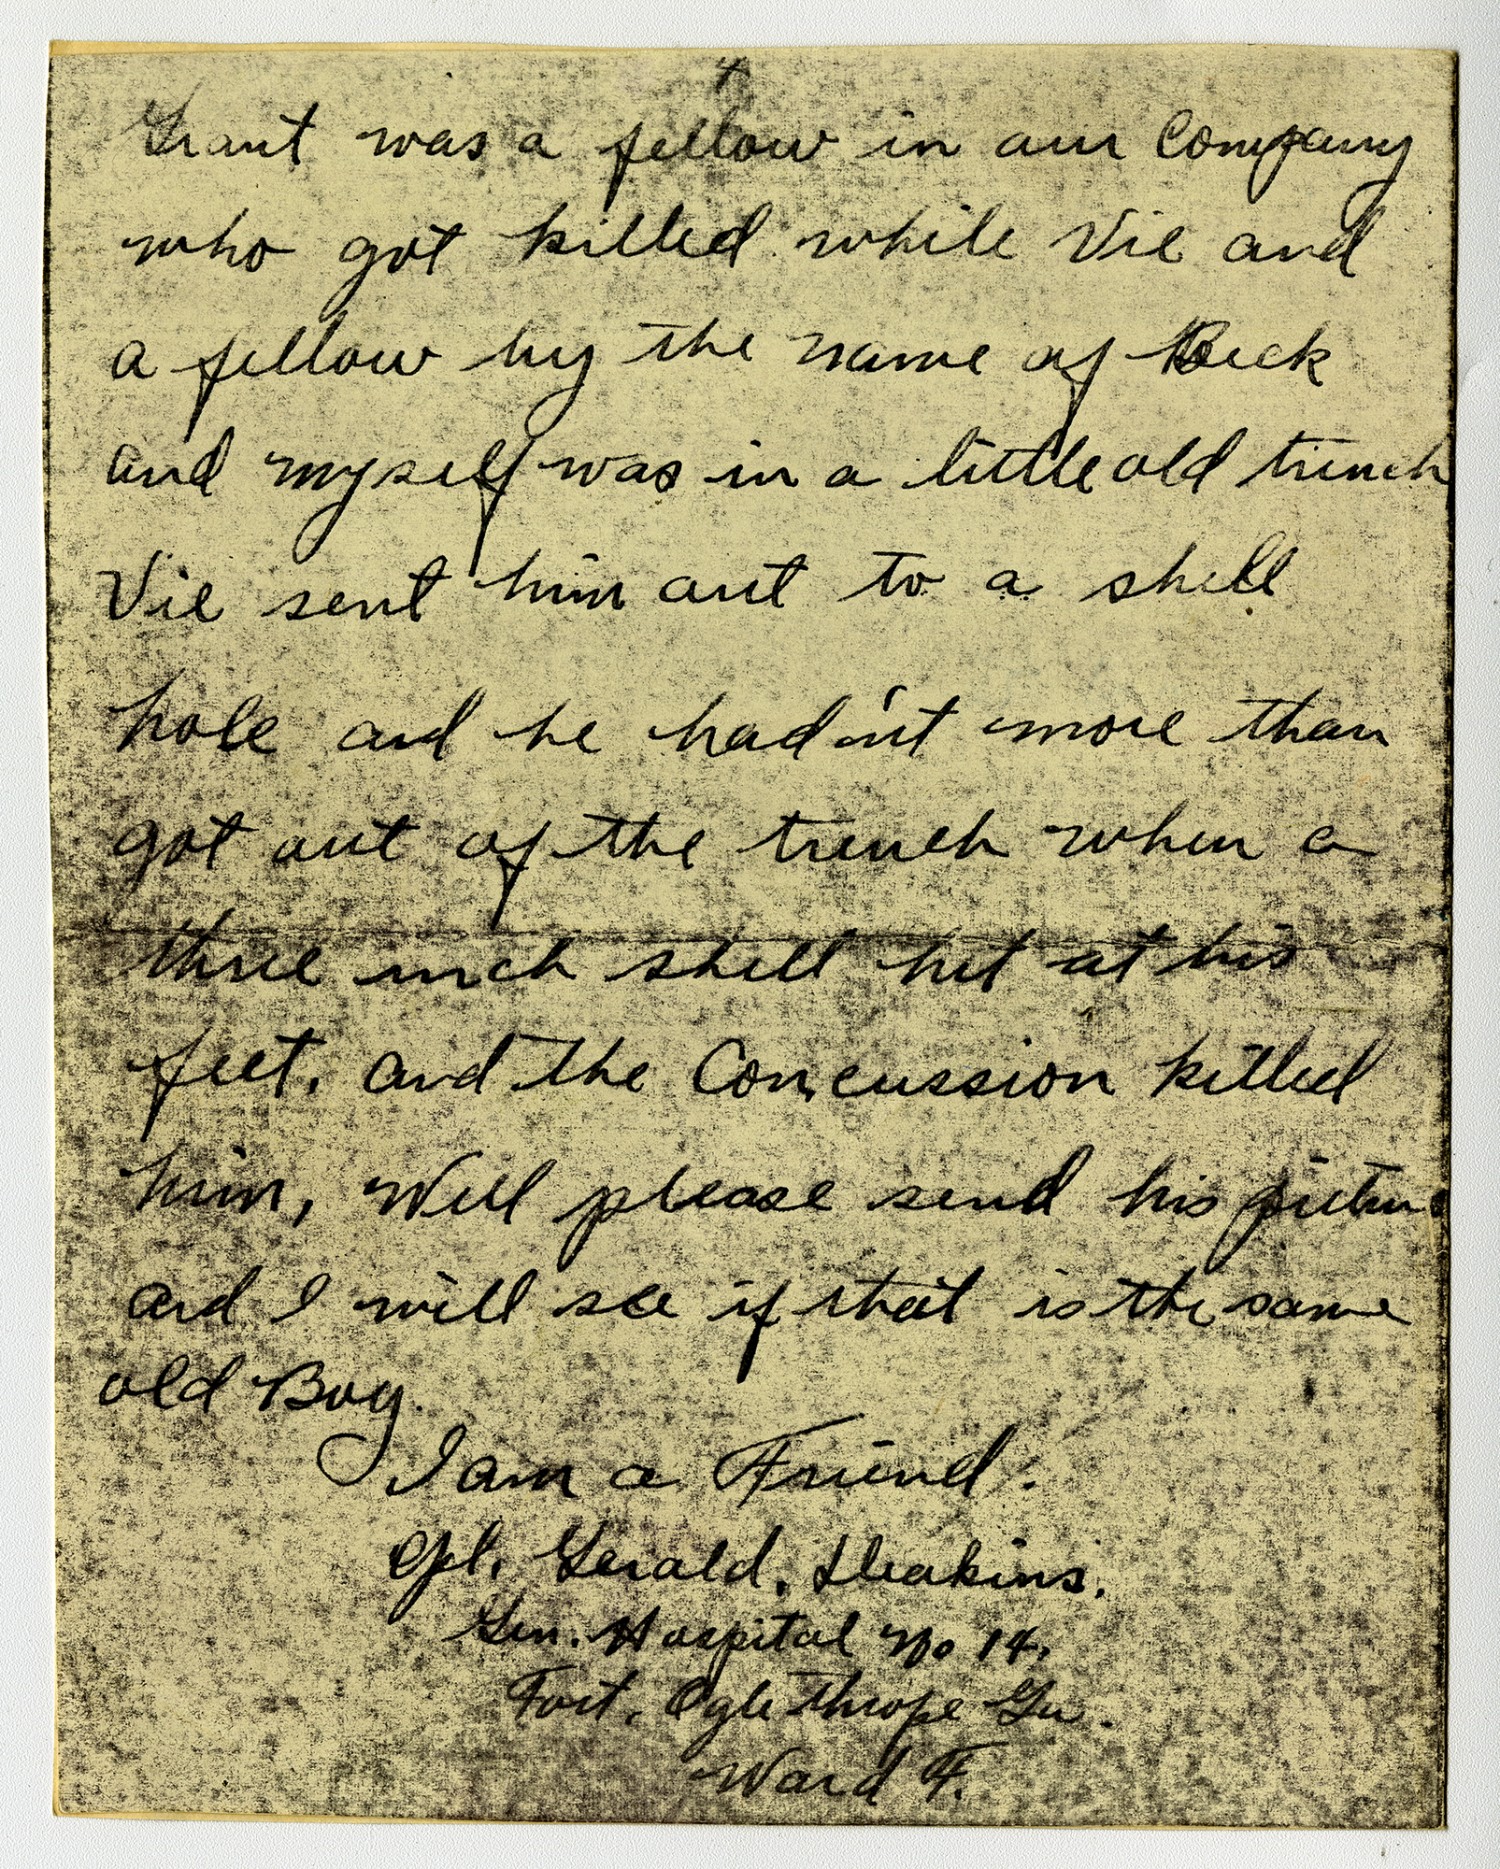 4
Grant was a fellow in our Company
who got killed while Vic and
a fellow by the name of Beck
and myself was in a little old trench
Vic sent him out to a shell
hole and he had'nt more than
got out of the trench when a
three inch shell hit at his
feet, and the Concussion killed
him, Well please send his picture
and I will see if that is the same
old Boy.
I am a Friend.
Cpl. Gerald. Deakins.
Gen. Hospital No 14.
Fort. Oglethrope Ga.
Ward F.